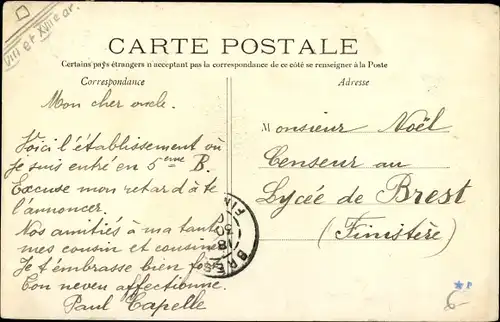 VIII et XVIIe ar.
CARTE POSTALE
Certains pays étrangers n'acceptant pas la correspondance de ce côté se renseigner à la Poste
Correspondance
Adresse
Mon cher oncle.
Voici l'établissement où
je suis entré en 5ème B.
Excuse mon retard à te
l'annoncer.
Nos amitiés à ma tante
mes cousin et cousine
Je t'embrasse bien fort
Ton neveu affectionné.
Paul Capelle
Monsieur Noël
Censeur au
Lycée de Brest
(Finistère)
BREST
FIN
P